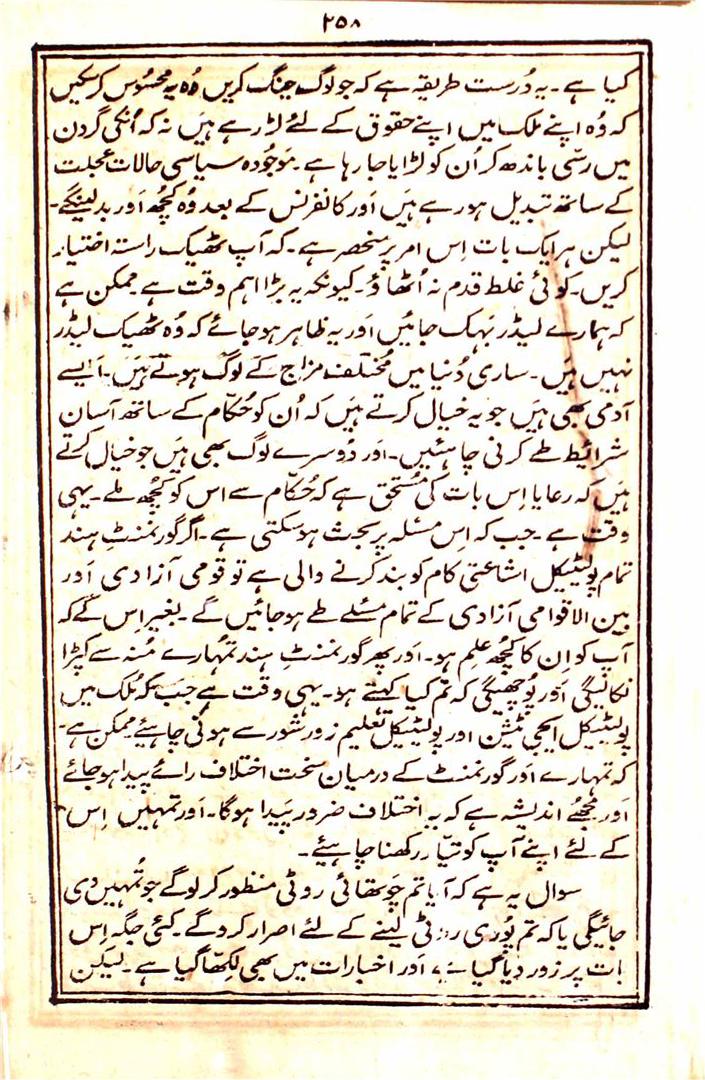 ۲۵۸
کیا ہے۔ یہ دُرست طریقہ ہے کہ جو لوگ جنگ کریں وُہ یہ محسُوس کر سکیں
کہ وُہ اپنے ملک میں اپنے حقوق کے لئے لڑ رہے ہیں نہ کہ اُنکی گردن
میں رسّی باندھ کر اُن کو لڑایا جا رہا ہے۔ موجُودہ سیاسی حالات عجلت
کے ساتھ تبدیل ہو رہے ہیں اَور کانفرنس کے بعد وُہ کچُھ اَور بدلینگے۔
لیکن ہر ایک بات اِس امر پر منحصر ہے۔ کہ آپ ٹھیک راستہ اختیار
کریں۔ کوئی غلط قدم نہ اُٹھاؤ۔ کیونکہ یہ بڑا اہم وقت ہے۔ ممکن ہے
کہ ہمارے لیڈر بہک جائیں اَور یہ ظاہر ہو جائے کہ وُہ ٹھیک لیڈر
نہیں ہیں۔ ساری دُنیا میں مُختلف مزاج کے لوگ ہوتے ہیں۔ اَیسے
آدمی بھی ہیں جو یہ خیال کرتے ہیں کہ اُن کو حُکّام کے ساتھ آسان
شرائیط طے کرنی چاہئیں۔ اَور دُوسرے لوگ بھی ہیں جو خیال کرتے
ہیں کہ رعایا اِس بات کی مُستحق ہے کہ حُکّام سے اس کو کچُھ ملے۔ یہی
وقت ہے۔ جب کہ اِس مسئلہ پر بحث ہو سکتی ہے۔ اگر گورنمنٹِ ہند
تمام پولیٹیکل اشاعتی کام کو بند کرنے والی ہے تو قومی آزادی اَور
بین الاقوامی آزادی کے تمام مسئلے طے ہو جائیں گے۔ بغیر اِس کے کہ
آپ کو اِن کا کچُھ علم ہو۔ اَور پھر گورنمنٹِ ہند تمُہارے مُنہ سے کپڑا
نکالیگی اَور پُوچھیگی کہ تم کیا کہتے ہو۔ یہی وقت ہے جب کہ مُلک میں
پولیٹیکل ایجی ٹیشن اور پولیٹیکل تعلیم زور شور سے ہونی چاہیئے۔ ممکن ہے۔
کہ تمہارے اَور گورنمنٹ کے درمیان سخت اختلاف رائے پیدا ہو جائے
اَور مجُھے اندیشہ ہے کہ یہ اختلاف ضرور پَیدا ہوگا۔ اَور تمہیں اِس
کے لئے اپنے آپ کو تیّار رکھنا چاہیئے۔
سوال یہ ہے کہ آیا تم چَوتھائی روٹی منظور کر لوگے جو تُمہیں دی
جائیگی یا کہ تم پُوری روٹی لینے کے لئے اصرار کرو گے۔ کئی جگہ اِس
بات پر زور دِیا گیا ہے، اَور اخبارات میں بھی لکِھا گیا ہے۔ لیکن